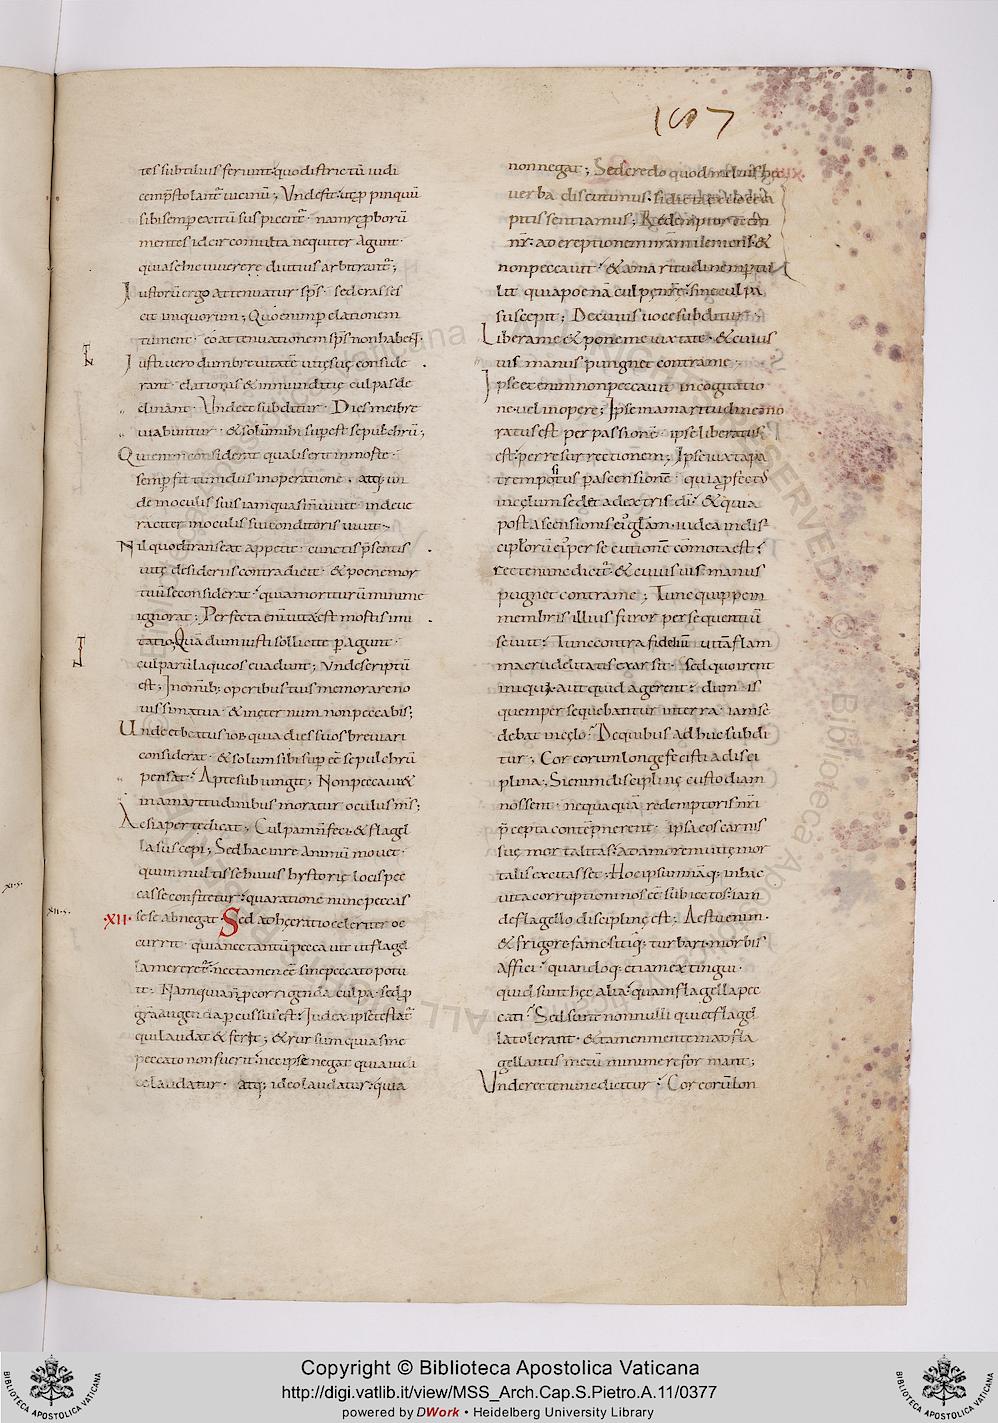 187
tes subtilius feriunt· quo districtũ iudi
cem p̄stolant᷒ vicinũ; Vnde fit· ut ꝑ pinquũ
sibi semꝑ exitũ suspicent᷒· nam reꝓborũ
mentes idcirco multa nequiter agunt·
quia se hic vivere diutius arbitrant᷒;
Iustorũ ergo attenuatur sp̄s· sed crasses
cit iniquorum; Quo enim ꝑ elationem
tument· eo attenuationem sp̄s non habent;
Iusti vero dum brevitatẽ vitę suę conside
rant· elationis & inmunditię culpas de
clinant· Vnde et subditur· Dies mei bre
viabuntur· & solũ mihi supest sepulchrũ;
Qui enim considerat qualis erit in morte·
semꝑ fit timidus in operatione· atq; un
de in oculis suis iam quasi ñ vivit· inde ve
raciter in oculis sui conditoris vivit·
Nil quod transeat appetit· cunctis p̄sentis
vitę desideriis contradicit· & poene mor
tuũ se considerat· quia moriturũ minime
ignorat; Perfecta enĩ vita est mortis imi
tatio· Quã dum iusti sollicite peragunt·
culparũ laqueos evadunt; Vnde scriptũ
est; In omnib; operibus tuis memorare no
vissima tua· & in ęternum non peccabis;
Unde et beatus iob quia dies suos breviari
considerat· & solum sibi supeẽ sepulchrũ
pensat· Apte subiungit; Non peccavi &
in amaritudinibus moratur oculus m̄s;
Ac si aperte dicat; Culpam ñ feci· & flagel
la suscepi; Sed hac in re animũ movet·
qui in multis se huius hystorię locis pec
casse confitetur· qua ratione nunc peccas
·XII· se se abnegat· Sed ad hęc ratio celeriter oc
currit· quia nec tantũ peccavit ut flagel
la mereret᷒· nec tamen eẽ sine peccato potu
it; Nam quia ñ ꝓ corrigenda culpa· sed ꝓ
gr̄a augenda ꝑcussus est· Iudex ipse testat᷒
qui laudat & ferit; & rursum quia sine
peccato non fuerit· nec ipse negat qui a iudi
ce laudatur· atq; ideo laudatur· quia
non negat; Sed credo quod melius hęc
verba discutimus· si dicta ex voce ca
pitis sentiamus; Redemptor etem
nr̄· ad ereptionem nr̄am veniens· &
non peccavit· & amaritudinem ꝑtu
lit· quia poenã culpę nr̄ę· sine culpa
suscepit; De cuius voce subditur·
Libera me & pone me iuxta te· & cuius
vis manus pugnet contra me·
Ipse etenim non peccavit in cogitatio
ne· vel in opere; Ipse in amaritudine mo
ratus est per passionẽ· ipse liberatus
est· per resurrectionem; Ipse iuxta pa
trem positus ꝑ ascensionẽ· quia ꝑfecto
in cęlum sedet a dextris dı̄· & quia
post ascensionis eius glãm· iudea in dis
cipl'orũ eius persecutionẽ cõmota est·
recte nunc dicit᷒· & cuius vis manus
pugnet contra me; Tunc quippe in
membris illius furor persequentiũ
sevit; Tunc contra fideliũ vitã flam
ma crudelitatis exarsit· Sed quo irent
iniqui aut quid agerent· dum is
quem persequebantur in terra· iam se
debat in cęlo· De quibus adhuc subdi
tur; Cor eorum longe fecisti a disci
plina; Si enim disciplinę custodiam
nossent· nequaquã redemptoris nr̄i
p̄cepta contẽpnerent· ipsa eos carnis
suę mortalitas· ad amorem vitę in mor
talis excitasset· Hoc ipsum naq; in hac
vita corruptione nos eẽ subiectos· iam
de flagello disciplinę est; Aestu enim·
& frigore· fame sitiq; turbari· morbis
affici· quandoq; etiam extingui·
quid sunt hęc alia· quam flagella pec
cati· Sed sunt nonnulli qui et flagel
la tolerant· & tamen mentem ad fla
gellantis metũ minime reformant;
Vnde recte nunc dicitur· Cor eorũ lon
XI·S·
XII·S·
Copyright © Biblioteca Apostolica Vaticana
http://digi.vatlib.it/view/MSS_Arch.Cap.S.Pietro.A.11/0377
powered by DWork • Heidelberg University Library
BIBLIOTECA APOSTOLICA VATICANA
BIBLIOTECA APOSTOLICA VATICANA